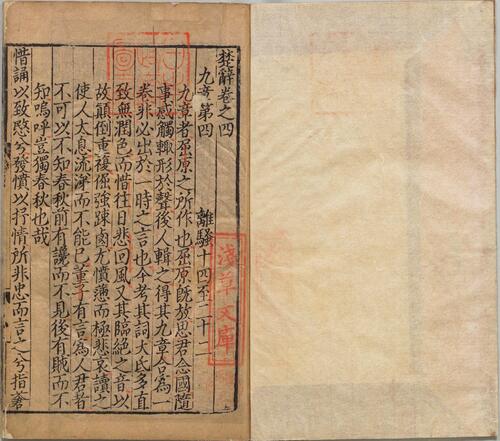 楚辭卷之四
九章第四
離騷十四至二十二
九章者屈原之所作也屈原既放思君念國隨
事感觸輒形於聲後人輯之得其九章合為一
卷非必出於一時之言也今考其詞大氐多直
致無潤色而惜往日悲回風又其臨絶之音以
故顛倒重複倔強踈鹵尤憤懣而極悲哀讀之
使人太息流涕而不能已董子有言為人君者
不可以不知春秋前有讒而不見後有賊而不
知嗚呼豈獨春秋也哉
惜誦以致愍兮發憤以抒情所非忠而言之兮指蒼
淺草文庫